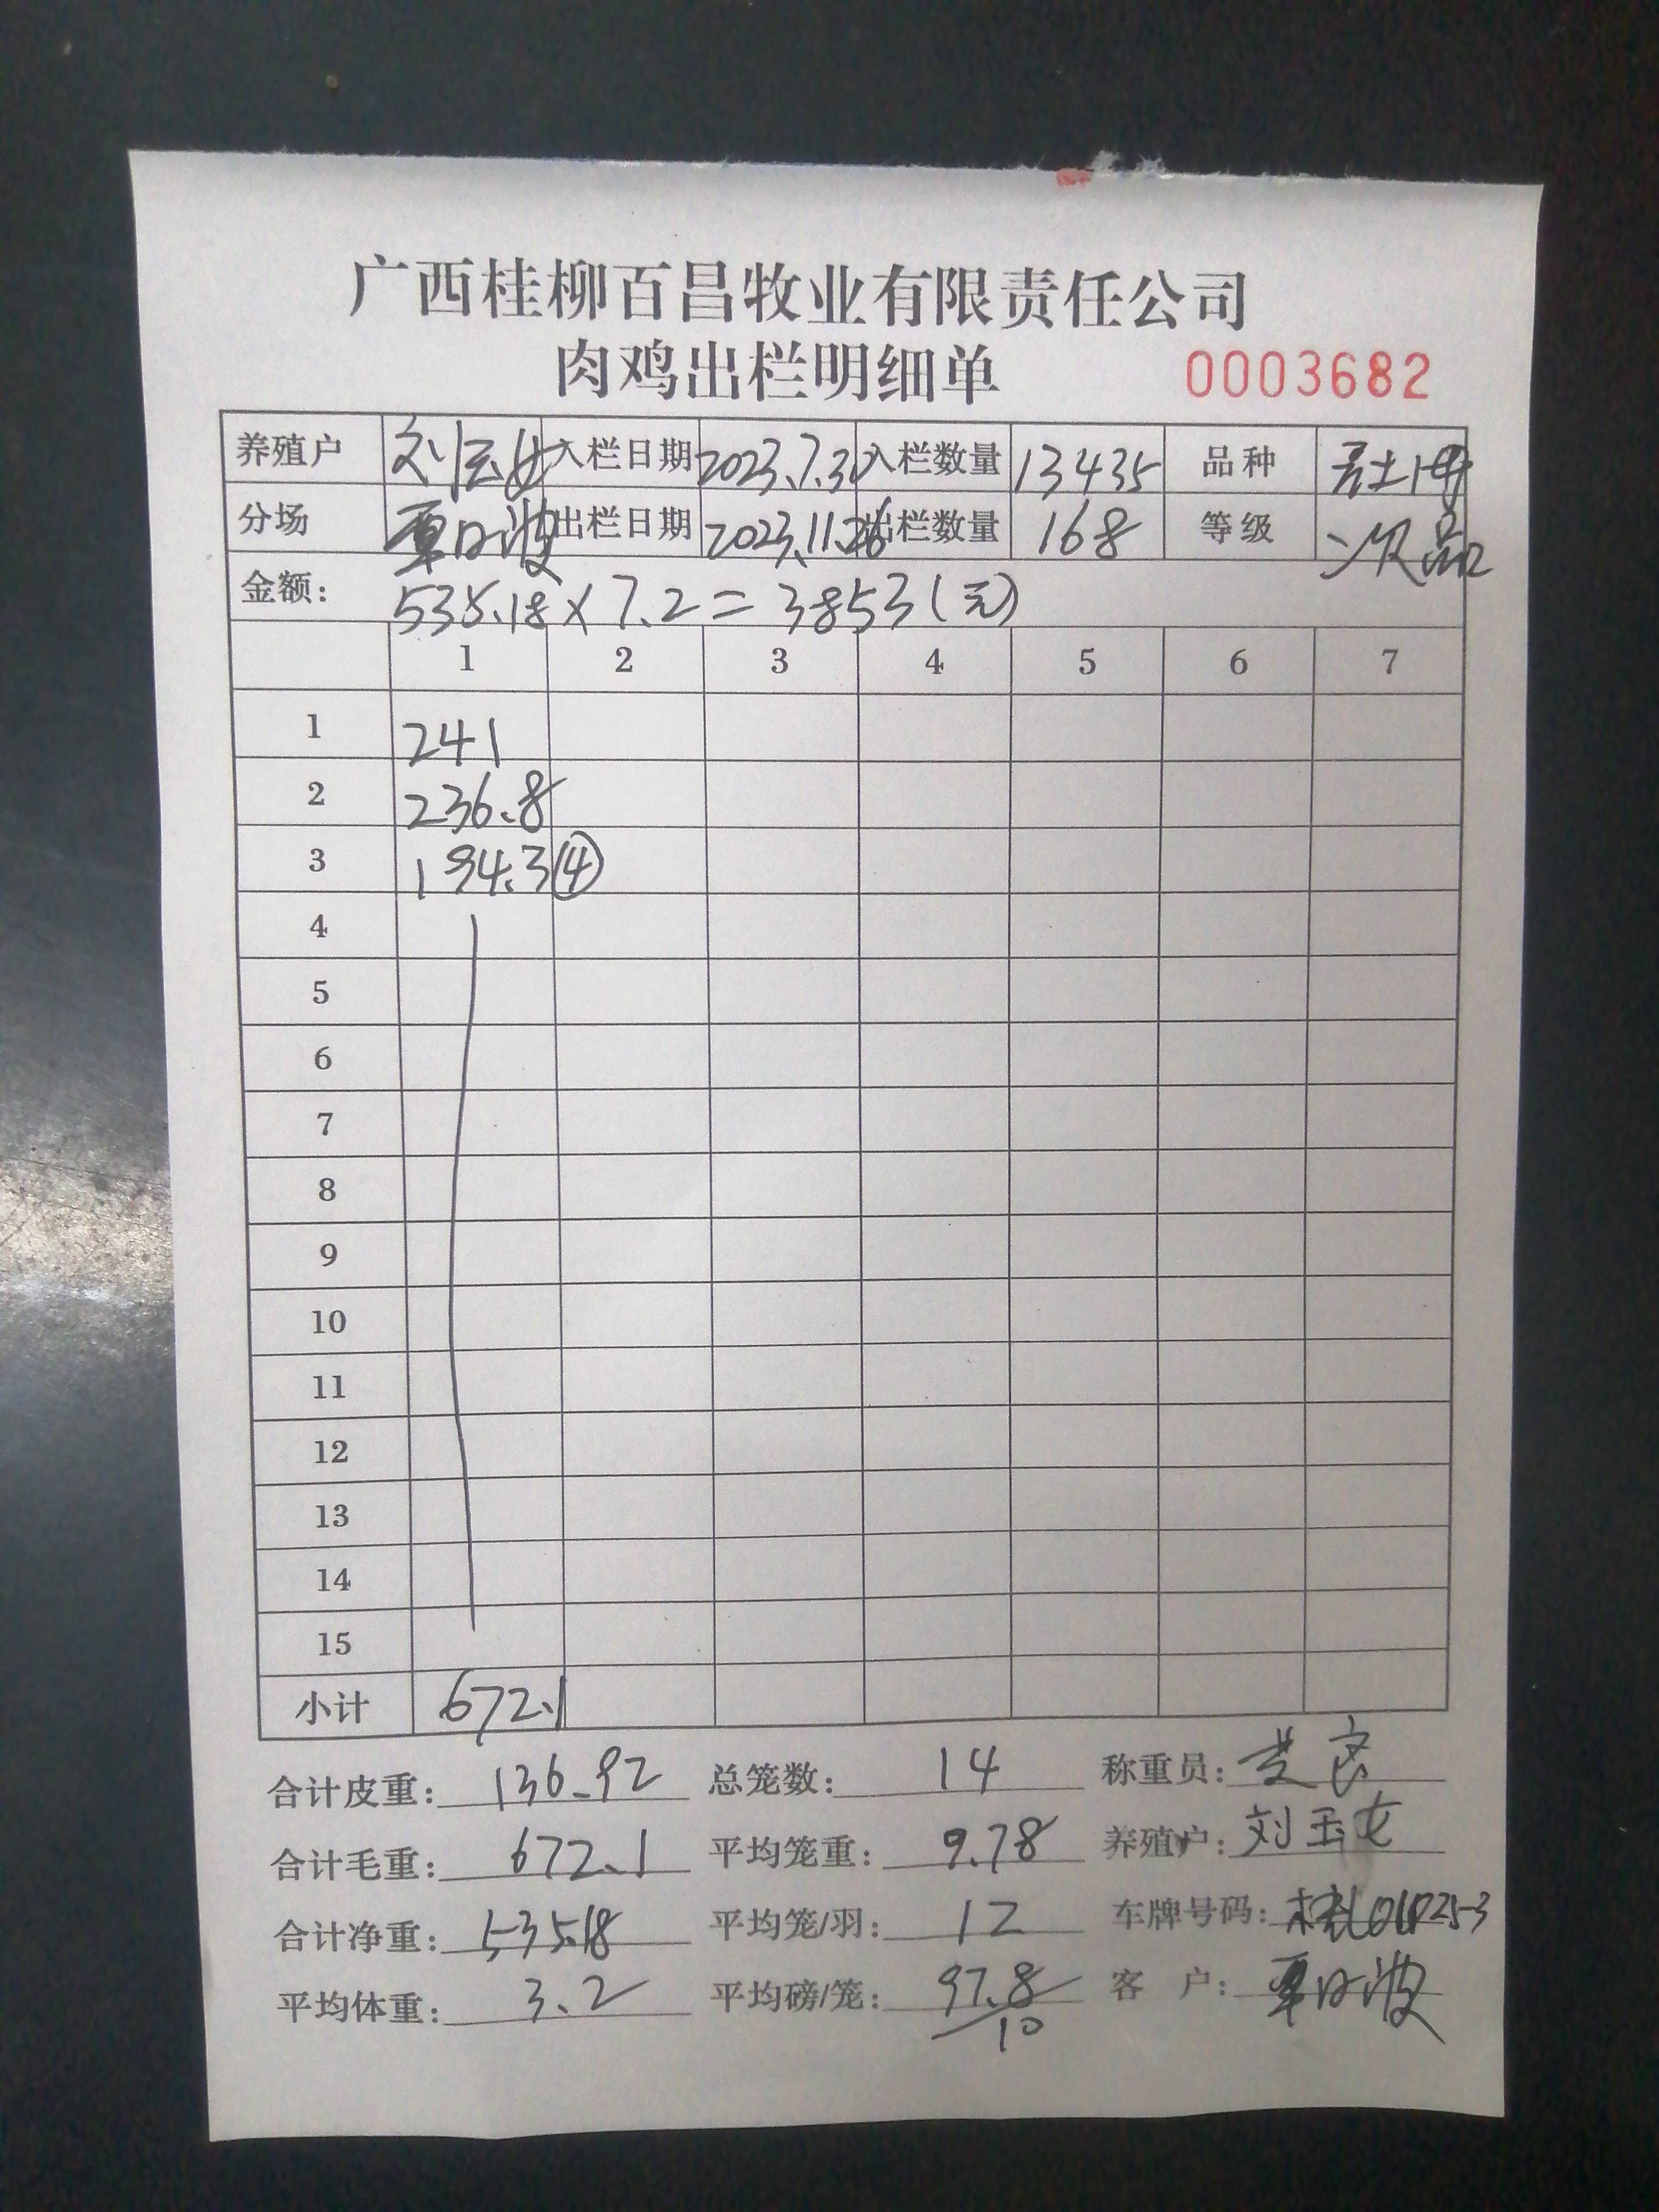 广西桂柳百昌牧业有限责任公司
肉鸡出栏明细单 0003682
养殖户 入栏日期 2023.7.31 入栏数量 13435 品种
分场 覃日波 出栏日期 2023.11.26 出栏数量 168 等级 次品
金额: 535.18 × 7.2 = 3853 (元)
1 2 3 4 5 6 7
1 241
2 236.8
3 194.3 ④
4
5
6
7
8
9
10
11
12
13
14
15
小计 672.1
合计皮重: 136.92 总笼数: 14 称重员:
合计毛重: 672.1 平均笼重: 9.78 养殖户: 刘玉
合计净重: 535.18 平均笼/羽: 12 车牌号码:
平均体重: 3.2 平均磅/笼: 97.8/10 客 户: 覃日波